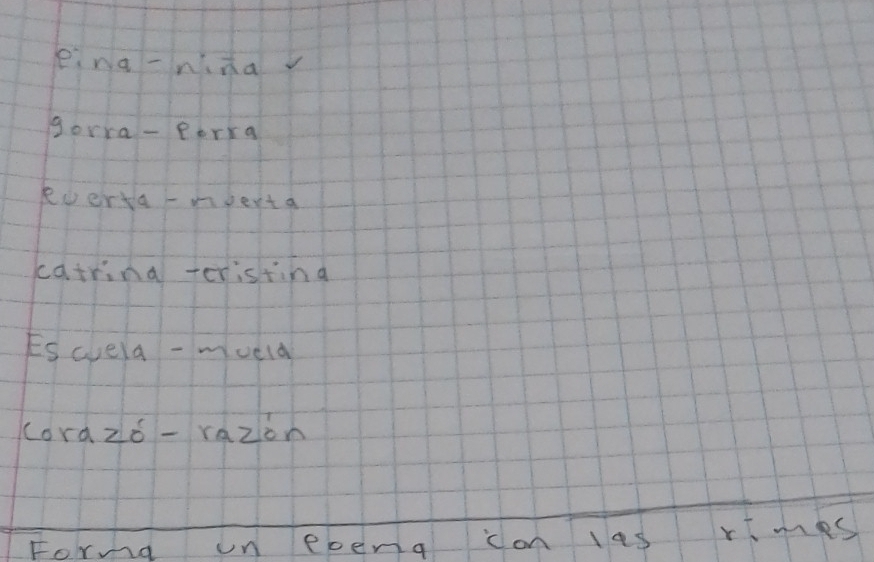 Pina - niña ✓
gorra - Perra
Puerta - muerta
catrina - cristina
Escuela - muela
corazó - razón
Forma un Poema con las rimas